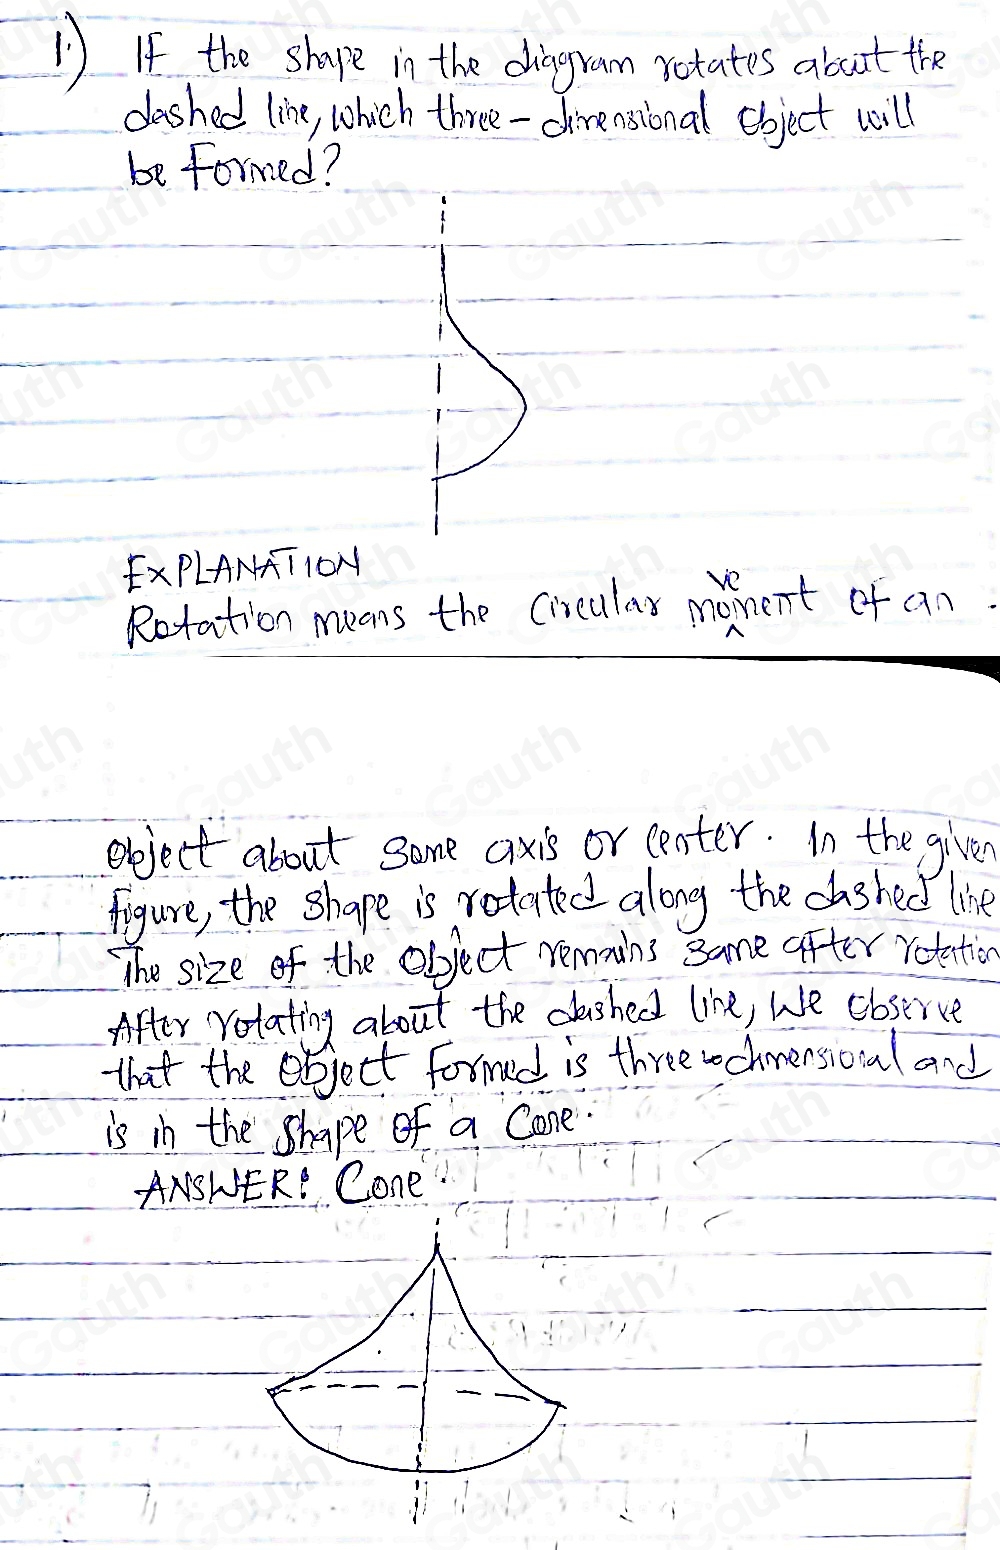 1.) If the shape in the diagram rotates about the
dashed line, which three-dimensional object will
be formed?
EXPLANATION
Rotation means the circular moment of an
ve
^
object about some axis or center. In the given
figure, the shape is rotated along the dashed line
The size of the object remains same after rotation
After rotating about the dashed line, we observe
that the object formed is three dimensional and
is in the shape of a cone.
ANSWER: Cone.